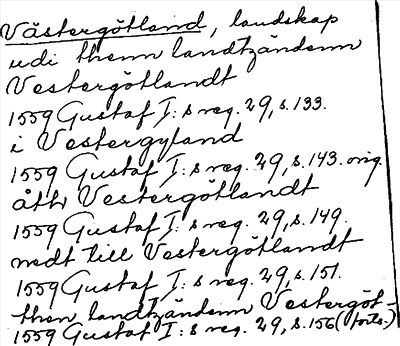 Västergötland, landskap
udi thenn landtzändenn
Vestergötlandt
1559 Gustaf I:s reg. 29, s. 133.
i Vestergyland
1559 Gustaf I:s reg. 29, s. 143. orig.
åth Vestergötlandt
1559 Gustaf I:s reg. 29, s. 149.
nedt till Vestergötlandt
1559 Gustaf I:s reg. 29, s. 151.
then landtzändenn Vestergöt-
1559 Gustaf I:s reg. 29, s. 156 (forts.)